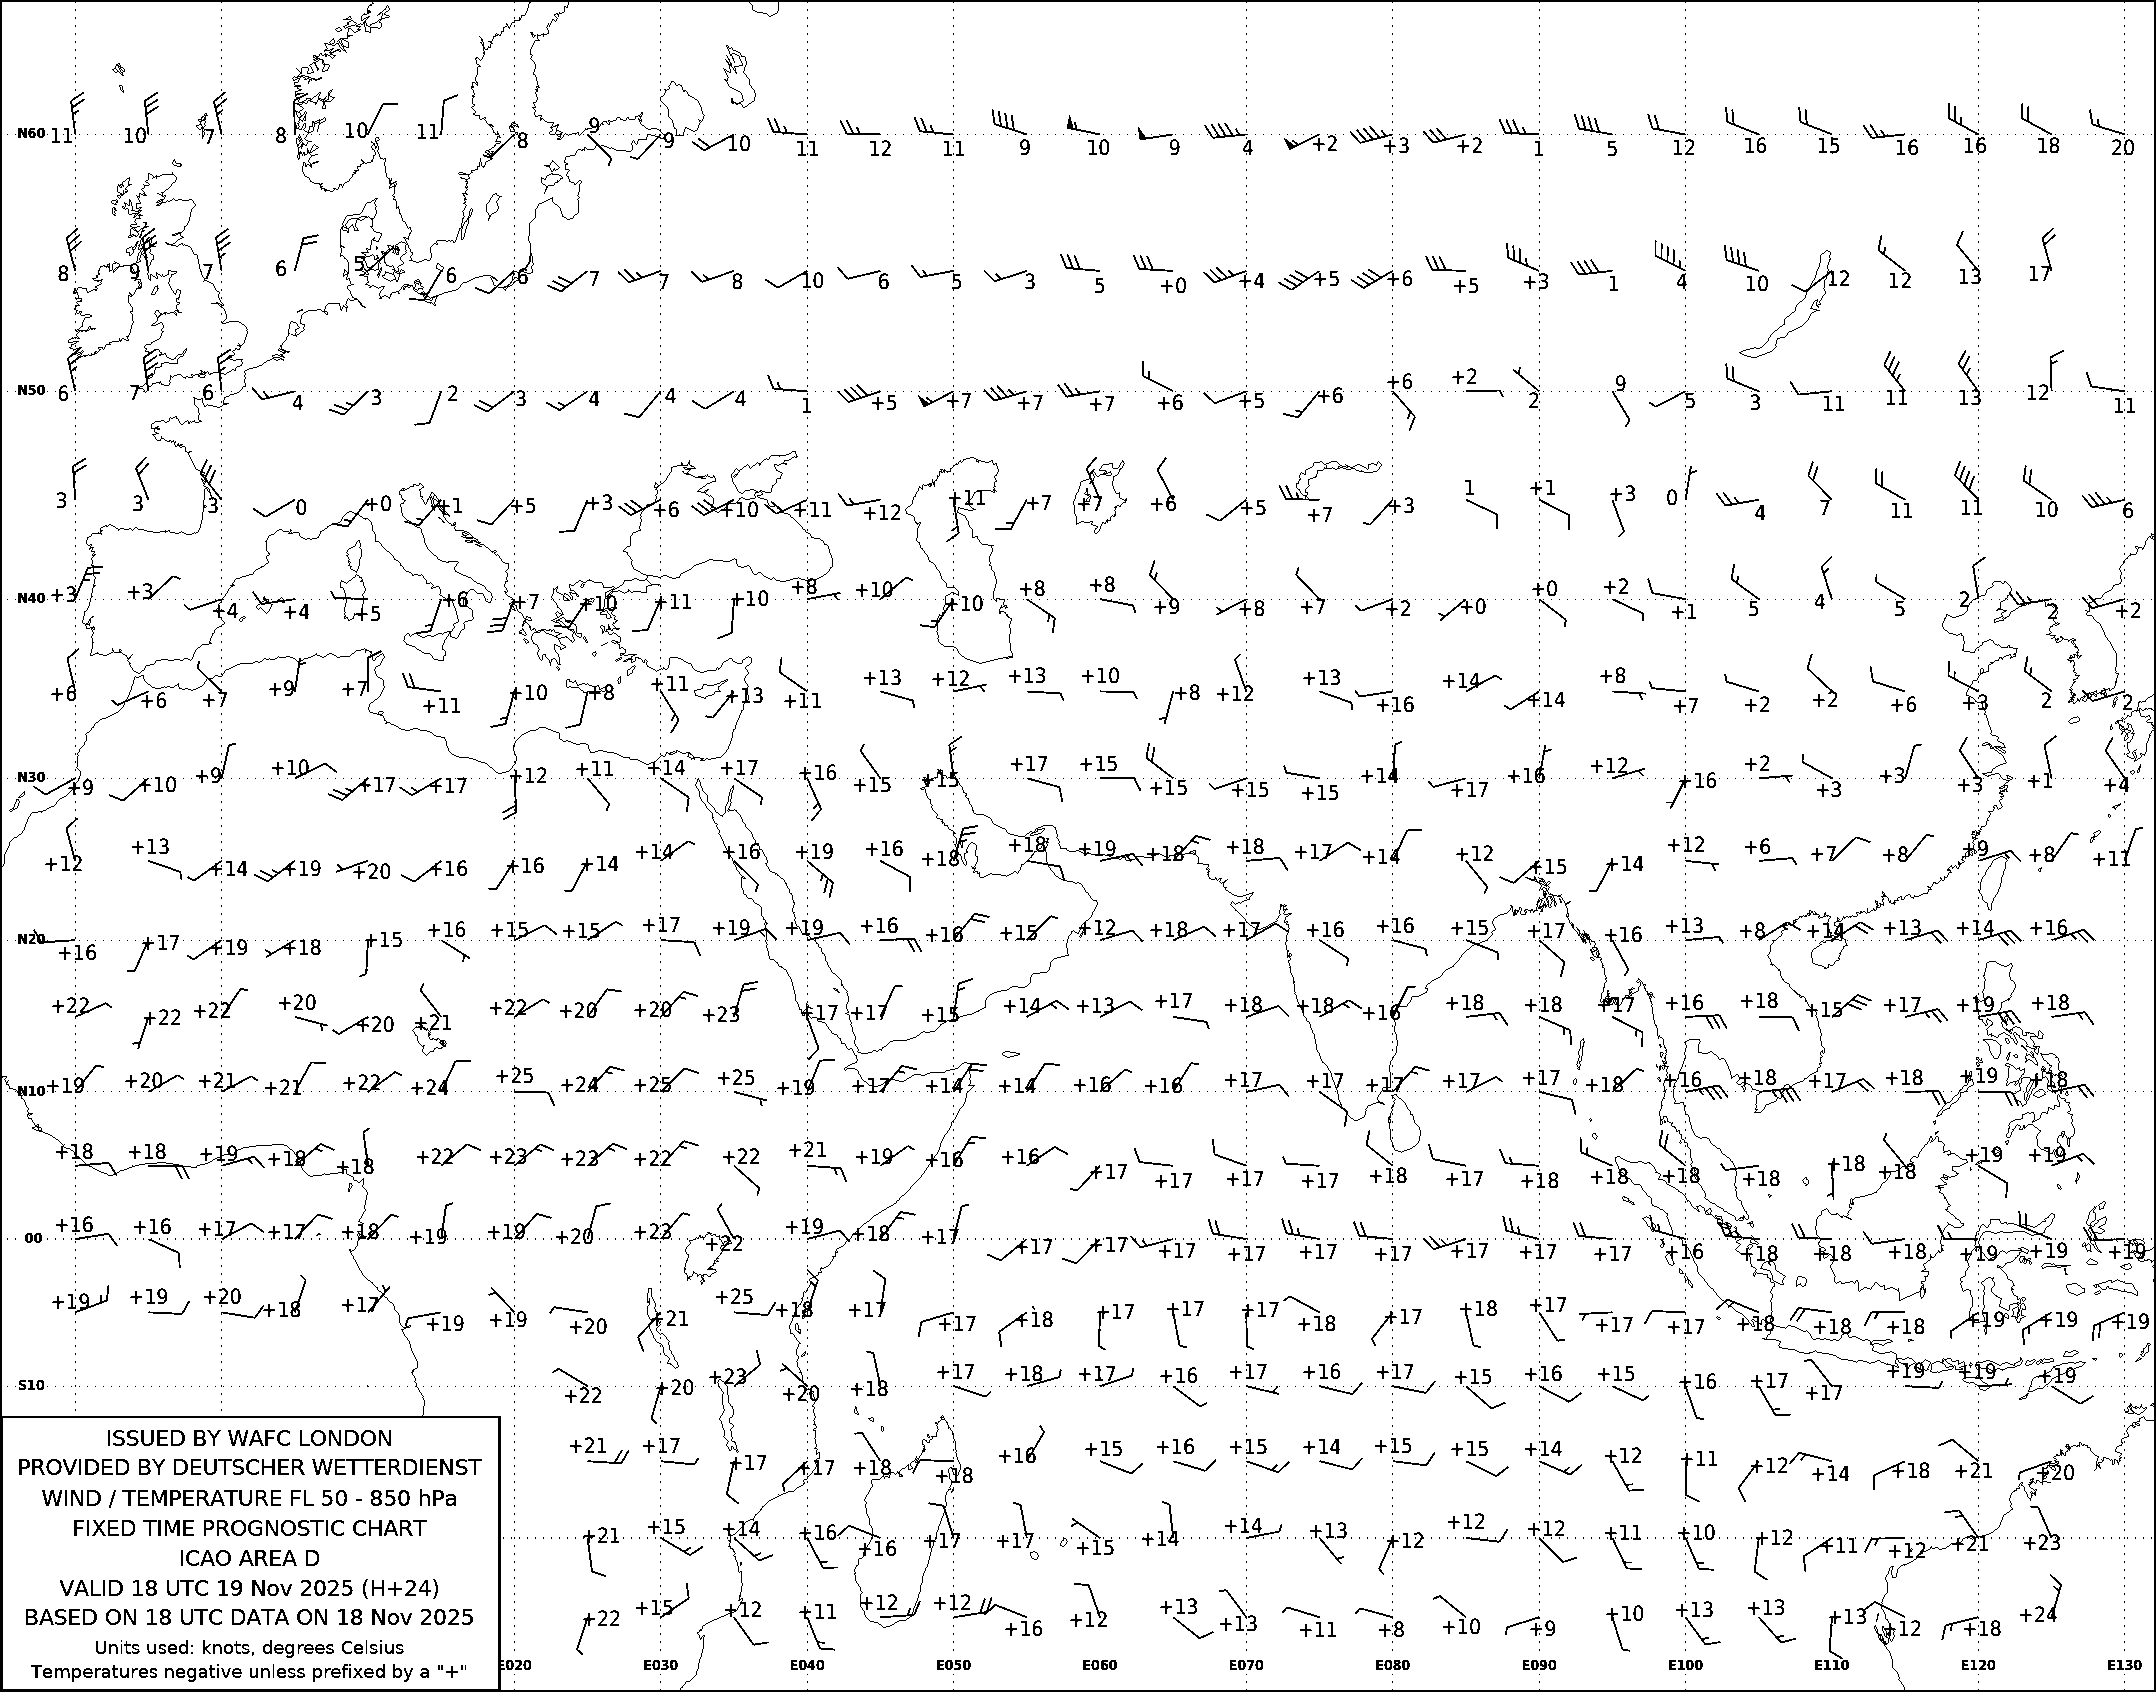 N60 11 10 7 8 10 11 8 9 9 10 11 12 11 9 10 9 4 +2 +3 +2 1 5 12 16 15 16 16 18 20
8 9 7 6 5 6 6 7 7 8 10 6 5 3 5 +0 +4 +5 +6 +5 +3 1 4 10 12 12 13 17
N50 6 7 6 4 3 2 3 4 4 4 1 +5 +7 +7 +7 +6 +5 +6 +6 +2 2 9 5 3 11 11 13 12 11
3 3 3 0 +0 +1 +5 +3 +6 +10 +11 +12 +11 +7 +7 +6 +5 +7 +3 1 +1 +3 0 4 7 11 11 10 6
N40 +3 +3 +4 +4 +5 +6 +7 +10 +11 +10 +8 +10 +10 +8 +8 +9 +8 +7 +2 +0 +0 +2 +1 5 4 5 2 2 +2
+6 +6 +7 +9 +7 +11 +10 +8 +11 +13 +11 +13 +12 +13 +10 +8 +12 +13 +16 +14 +14 +8 +7 +2 +2 +6 +3 2 2
N30 +9 +10 +9 +10 +17 +17 +12 +11 +14 +17 +16 +15 +15 +17 +15 +15 +15 +15 +14 +17 +16 +12 +16 +2 +3 +3 +3 +1 +4
+12 +13 +14 +19 +20 +16 +16 +14 +14 +16 +19 +16 +18 +18 +19 +18 +18 +17 +14 +12 +15 +14 +12 +6 +7 +8 +9 +8 +11
N20 +16 +17 +19 +18 +15 +16 +15 +15 +17 +19 +19 +16 +16 +15 +12 +18 +17 +16 +16 +15 +17 +16 +13 +8 +14 +13 +14 +16
+22 +22 +22 +20 +20 +21 +22 +20 +20 +23 +17 +17 +15 +14 +13 +17 +18 +18 +16 +18 +18 +17 +16 +18 +15 +17 +19 +18
N10 +19 +20 +21 +21 +22 +24 +25 +24 +25 +25 +19 +17 +14 +14 +16 +16 +17 +17 +17 +17 +17 +18 +16 +18 +17 +18 +19 +18
+18 +18 +19 +18 +18 +22 +23 +23 +22 +22 +21 +19 +16 +16 +17 +17 +17 +17 +18 +17 +18 +18 +18 +18 +18 +18 +19 +19
00 +16 +16 +17 +17 +18 +19 +19 +20 +23 +22 +19 +18 +17 +17 +17 +17 +17 +17 +17 +17 +17 +17 +16 +18 +18 +18 +19 +19 +19
+19 +19 +20 +18 +17 +19 +19 +20 +21 +25 +18 +17 +17 +18 +17 +17 +17 +18 +17 +18 +17 +17 +17 +18 +18 +18 +19 +19 +19
S10 +22 +20 +23 +20 +18 +17 +18 +17 +16 +17 +16 +17 +15 +16 +15 +16 +17 +17 +19 +19 +19
+21 +17 +17 +17 +18 +18 +16 +15 +16 +15 +14 +15 +15 +14 +12 +11 +12 +14 +18 +21 +20
+21 +15 +14 +16 +16 +17 +17 +15 +14 +14 +13 +12 +12 +12 +11 +10 +12 +11 +12 +21 +23
+22 +15 +12 +11 +12 +12 +16 +12 +13 +13 +11 +8 +10 +9 +10 +13 +13 +13 +12 +18 +24
E020 E030 E040 E050 E060 E070 E080 E090 E100 E110 E120 E130
ISSUED BY WAFC LONDON
PROVIDED BY DEUTSCHER WETTERDIENST
WIND / TEMPERATURE FL 50 - 850 hPa
FIXED TIME PROGNOSTIC CHART
ICAO AREA D
VALID 18 UTC 19 Nov 2025 (H+24)
BASED ON 18 UTC DATA ON 18 Nov 2025
Units used: knots, degrees Celsius
Temperatures negative unless prefixed by a "+"